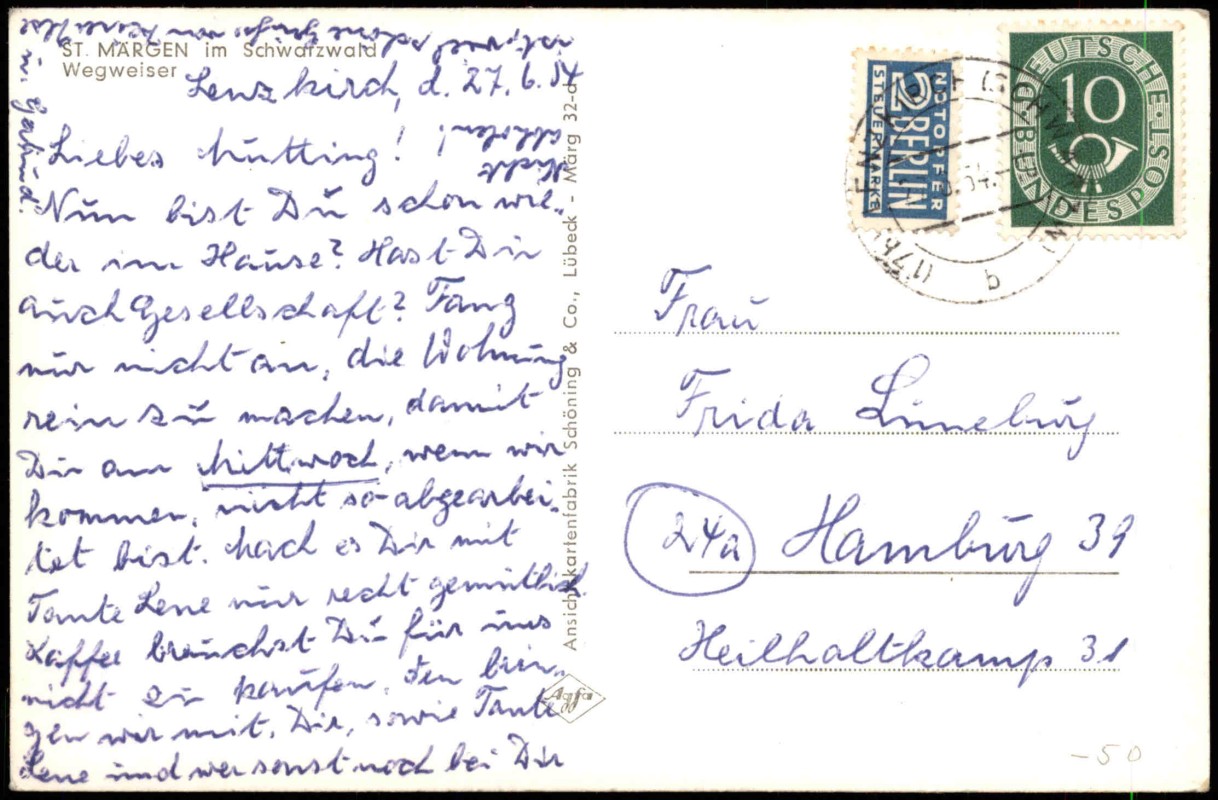 ST. MÄRGEN im Schwarzwald
Wegweiser
Lenzkirch, d. 27.6.54
Liebes Mutting!
Nun bist Du schon wie-
der im Hause? Hast Dir
auch Gesellschaft? Fang
nur nicht an, die Wohnung
rein zu machen, damit
Du am Mittwoch, wenn wir
kommen, nicht so abgearbei-
tet bist. Mach es Dir mit
Tante Lene nur recht gemütlich.
Kaffee brauchst Du für uns
nicht zu kaufen, den brin-
gen wir mit. Dir, sowie Tante
Lene und wer sonst noch bei Dir
ist, viel schöne Grüße von
u. Gertrud.
Nicht
abholen!
Ansichtskartenfabrik Schöning & Co., Lübeck - Märg 32-d
Agfa
NOTOPFER
2 BERLIN
STEUERMARKE
DEUTSCHE BUNDESPOST
10
(17b)
b
Frau
Frida Lüneburg
24a Hamburg 39
Heilholtkamp 31
-50